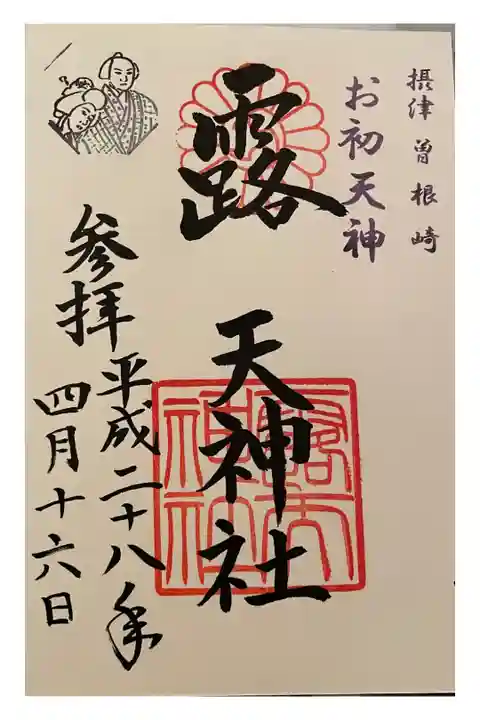 摂津 曽根崎
お初天神
露 天神社
参拝
平成二十八年
四月十六日
露天神社